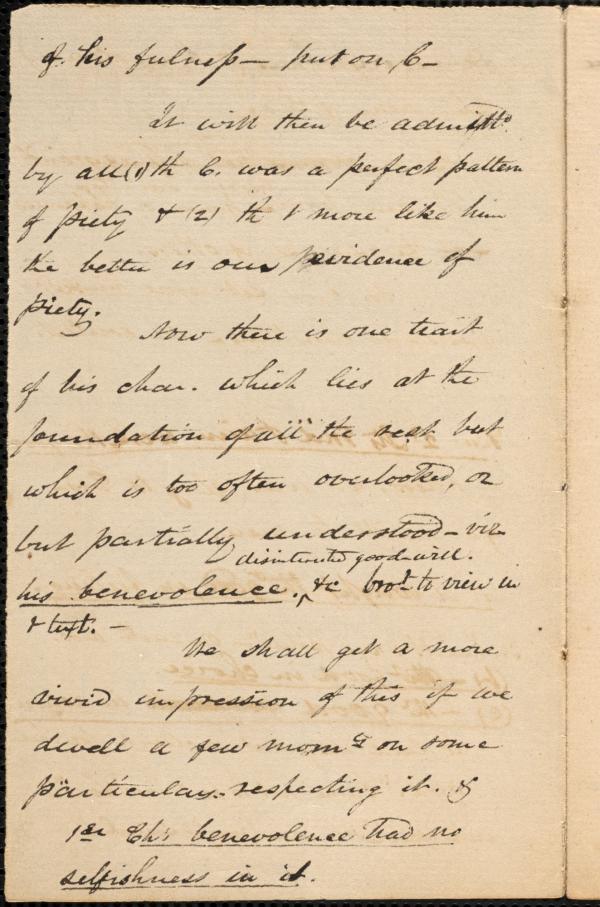 of his fulness – put on C –
It will then be admitted
by all (1) th C. was a perfect pattern
of piety & (2) th t more like him
the better is our evidence of
piety.
Now there is one trait
of his char. which lies at the
foundation of all the rest but
which is too often overlooked, or
but partially understood – viz
disinterested good-will.
his benevolence. ‸ &c brot to view in
t text. –
We shall get a more
vivid impression of this if we
dwell a few momts on some
particulars respecting it. &
1st Chs benevolence had no
selfishness in it.